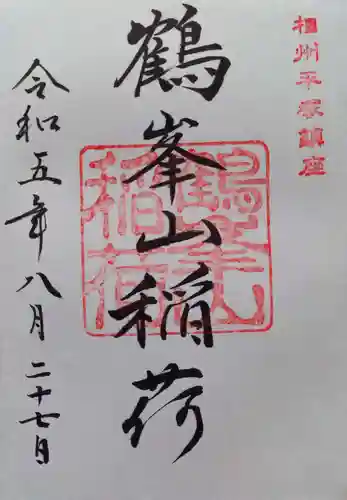 相州平塚鎮座
鶴峯山稲荷
令和五年八月二十七日
鶴峯山稲荷